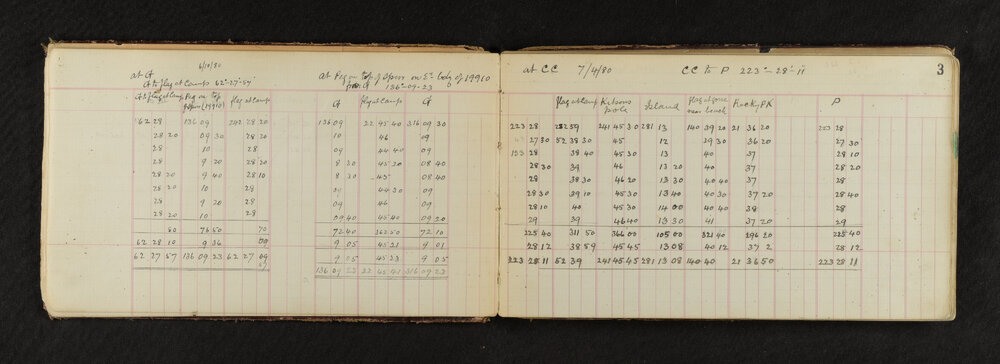 6/10/30
at G
G to flag at Camp 62°-27'-54"
G to flag at Camp Peg on top
flag at Camp
62 28 136 09 242 28 20
28 20 09 30 28 20
28 10 28
28 9 20 28 20
28 20 9 40 28 10
28 20 10 28
28 9 20 28
28 20 10 28
80 76 50 70
62 28 10 9 36 09
62 27 57 136 09 23 62 27 09
at Peg on top of Spur on Ec body of 19910
from G 136°-09-23
G flag at Camp G
136 09 22 45 40 316 09 30
10 46 09
09 44 40 09
8 30 45 20 08 40
8 30 45 08 40
09 44 30 09
09 46 09
09 40 45 40 09 20
72 40 362 50 72 10
9 05 45 21 9 01
9 05 45 23 9 05
136 09 23 22 45 41 316 09 23
3
at CC 7/4/30 CC to P 223°-28'-11
flag at Camp Island Rocky PK P
pole near beach
223 28 232 59 241 45 30 281 13 140 39 20 21 36 20 223 28
27 30 52 38 30 45 12 39 30 36 20 27 30
38 40 45 30 13 40 37 28 10
28 30 39 46 13 20 40 37 28 20
28 38 30 46 20 13 30 40 40 37 28
28 30 39 10 45 30 13 40 40 30 37 20 28 40
28 10 40 45 30 14 00 40 40 38 28
29 39 46 40 13 30 41 37 20 29
225 40 311 50 366 00 105 00 321 40 296 20 225 40
28 12 38 59 45 45 13 08 40 12 37 2 28 12
223 28 11 52 39 241 45 45 281 13 08 140 40 21 36 50 223 28 11